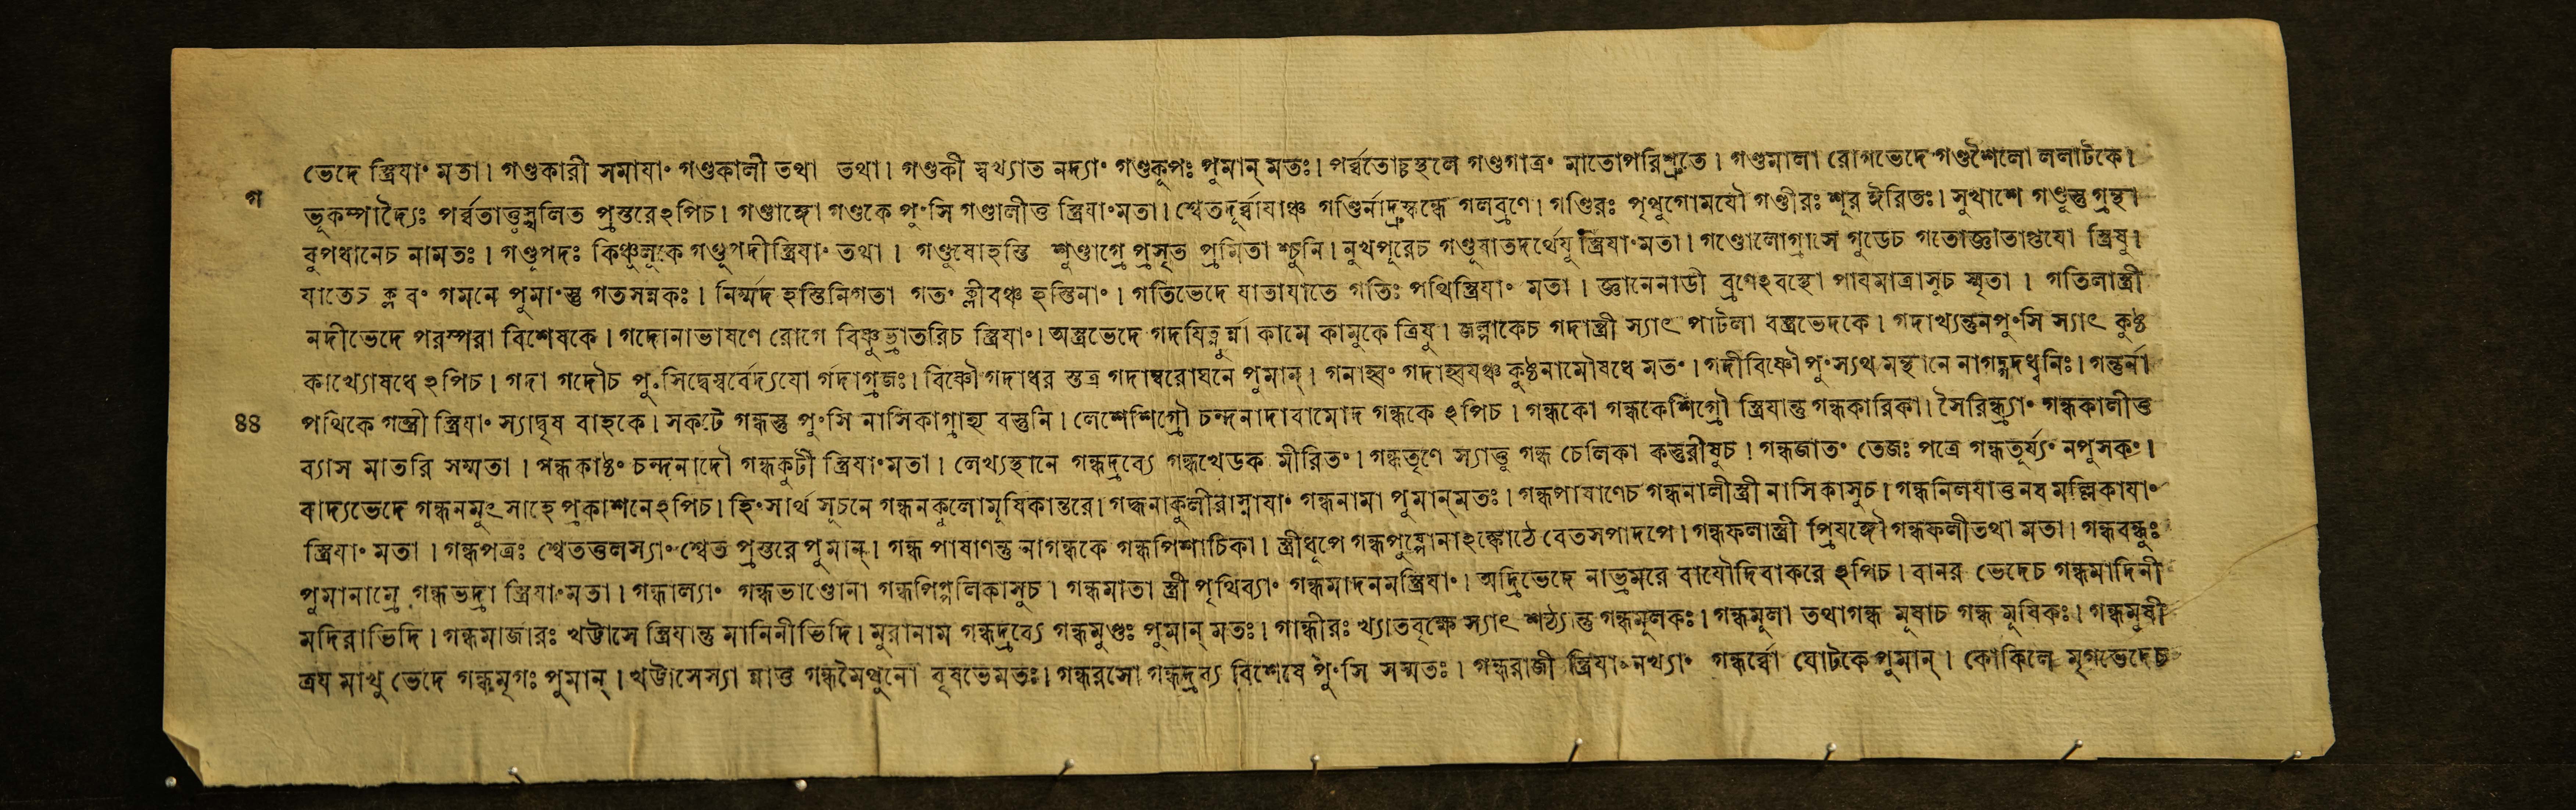 ভেদে স্ত্রিযাং মতা। গণ্ডকারী সমাযাং গণ্ডকালী তথা তথা। গণ্ডকী স্বখ্যাত নদ্যাং গণ্ডকূপঃ পুমান্ মতঃ। পর্ব্বতোচ্চস্থলে গণ্ডগাত্রং মাতোপরিশ্রুতে। গণ্ডমালা রোগভেদে গণ্ডশৈলো ললাটকে।
গ
ভূকম্পাদ্যৈঃ পর্ব্বতাত্তুস্খলিত প্রস্তরেঽপিচ। গণ্ডাঙ্গো গণ্ডকে পুংসি গণ্ডালীত্ত স্ত্রিযাংমতা। শ্বেতদূর্ব্বাযাঞ্চ গণ্ডির্নাদ্রুস্কন্ধে গলব্রণে। গণ্ডিরঃ পৃথুগোমযৌ গণ্ডীরঃ শূর ঈরিতঃ। সুখাশে গণ্ডুস্তু গ্রন্থা
বুপধানেচ নামতঃ। গণ্ডূপদঃ কিঞ্চুলুকে গণ্ডুপদীস্ত্রিযাং তথা। গণ্ডুষোহস্তি শুণ্ডাগ্রে প্রসৃত প্রমিতা শ্চুনি। নুখপূরেচ গণ্ডুষাতদর্থেযু স্ত্রিযাংমতা। গণ্ডোলোগ্রাসে গুডেচ গতোজ্ঞাতাগুযো স্ত্রিষু।
যাতেচ ক্লবং গমনে পুমাংস্তু গতসন্নকঃ। নির্ম্মদ হস্তিনিগতা গতং ক্লীবঞ্চ হস্তিনাং। গতিভেদে যাতাযাতে গতিঃ পথিস্ত্রিযাং মতা। জ্ঞানেনাডী ব্রণেঽবস্থো পাবমাত্রাসুচ স্মৃতা। গতিলাস্ত্রী
নদীভেদে পরম্পরা বিশেষকে। গদোনাভাষণে রোগে বিষ্ণুভ্রাতরিচ স্ত্রিযাং। অস্ত্রভেদে গদযিত্নুর্ন্না কামে কামুকে ত্রিযু। জল্পাকেচ গদাস্ত্রী স্যাৎ পাটলা বস্ত্রভেদকে। গদাখ্যন্তুনপুংসি স্যাৎ কুষ্ঠ
কাখ্যোষধে ঽপিচ। গদা গদৌচ পুংসিদ্বেস্বর্বেদ্যযো র্গদাগ্রজঃ। বিষ্ণৌ গদাধর স্তত্র গদাম্বরোঘনে পুমান্। গনাহ্বং গদাহ্বযঞ্চ কুষ্ঠনামৌষধে মতং। গদীবিষ্ণৌ পুংস্যথ মন্থানে নাগদ্গদধ্বনিঃ। গন্তুর্না
৪৪
পথিকে গন্ত্রী স্ত্রিযাং স্যাদ্বৃষ বাহকে। সকটে গন্ধস্তু পুংসি নাসিকাগ্রাহ্য বস্তুনি। লেশেশিগ্রৌ চন্দনাদাবামোদ গন্ধকে ঽপিচ। গন্ধকো গন্ধকেশিগ্রৌ স্ত্রিযান্তু গন্ধকারিকা। সৈরিন্ধ্র্যাং গন্ধকালীত্ত
ব্যাস মাতরি সম্মতা। গন্ধকাষ্ঠং চন্দনাদৌ গন্ধকুটী স্ত্রিযাংমতা। লেখ্যস্থানে গন্ধদ্রব্যে গন্ধখেডক মীরিতং। গন্ধতৃণে স্যাত্তু গন্ধ চেলিকা কস্তুরীষুচ। গন্ধজাতং তেজঃ পত্রে গন্ধতূর্য্যং নপুসকং।
বাদ্যভেদে গন্ধনমুৎ সাহে প্রকাশনেঽপিচ। হিংসার্থ সূচনে গন্ধনকুলোমূষিকান্তরে। গন্ধনাকুলীরাস্নাযাং গন্ধনামা পুমান্‌মতঃ। গন্ধপাষাণেচ গন্ধনালীস্ত্রী নাসিকাসুচ। গন্ধনিলযাত্তনব মল্লিকাযাং
স্ত্রিযাং মতা। গন্ধপত্রঃ শ্বেতত্তলস্যাং শ্বেত প্রস্তরে পুমান্। গন্ধ পাষাণন্তু নাগন্ধকে গন্ধপিশাচিকা। স্ত্রীধূপে গন্ধপুষ্পোনাঽঙ্কোঠে বেতসপাদপে। গন্ধফলাস্ত্রী প্রিযঙ্গৌ গন্ধফলীতথা মতা। গন্ধবন্ধুঃ
পুমানাম্রে গন্ধভদ্রা স্ত্রিযাংমতা। গন্ধাল্যাং গন্ধভাণ্ডোনা গন্ধপিপ্পলিকাসুচ। গন্ধমাতা স্ত্রী পৃথিব্যাং গন্ধমাদনমস্ত্রিযাং। অদ্রিভেদে নাভ্রমরে বাযৌদিবাকরে ঽপিচ। বানর ভেদেচ গন্ধমাদিনী
মদিরাভিদি। গন্ধমাজারঃ খট্টাসে স্ত্রিযান্তু মানিনীভিদি। মুরানাম গন্ধদ্রব্যে গন্ধমুণ্ডঃ পুমান্ মতঃ। গান্ধীরঃ খ্যাতবৃক্ষে স্যাৎ শঠ্যান্তু গন্ধমূলকঃ। গন্ধমূলা তথাগন্ধ মূষাচ গন্ধ মূষিকঃ। গন্ধমূষী
ত্রয মাখু ভেদে গন্ধমৃগঃ পুমান্। খট্টাসেস্যা ন্নাত্ত গন্ধমৈথুনো বৃষভেমতঃ। গন্ধরসো গন্ধদ্রব্য বিশেষে পুংসি সম্মতঃ। গন্ধরাজী স্ত্রিযাংনখ্যাং গন্ধর্ব্বো ঘোটকে পুমান্। কোকিলে মৃগভেদেচ